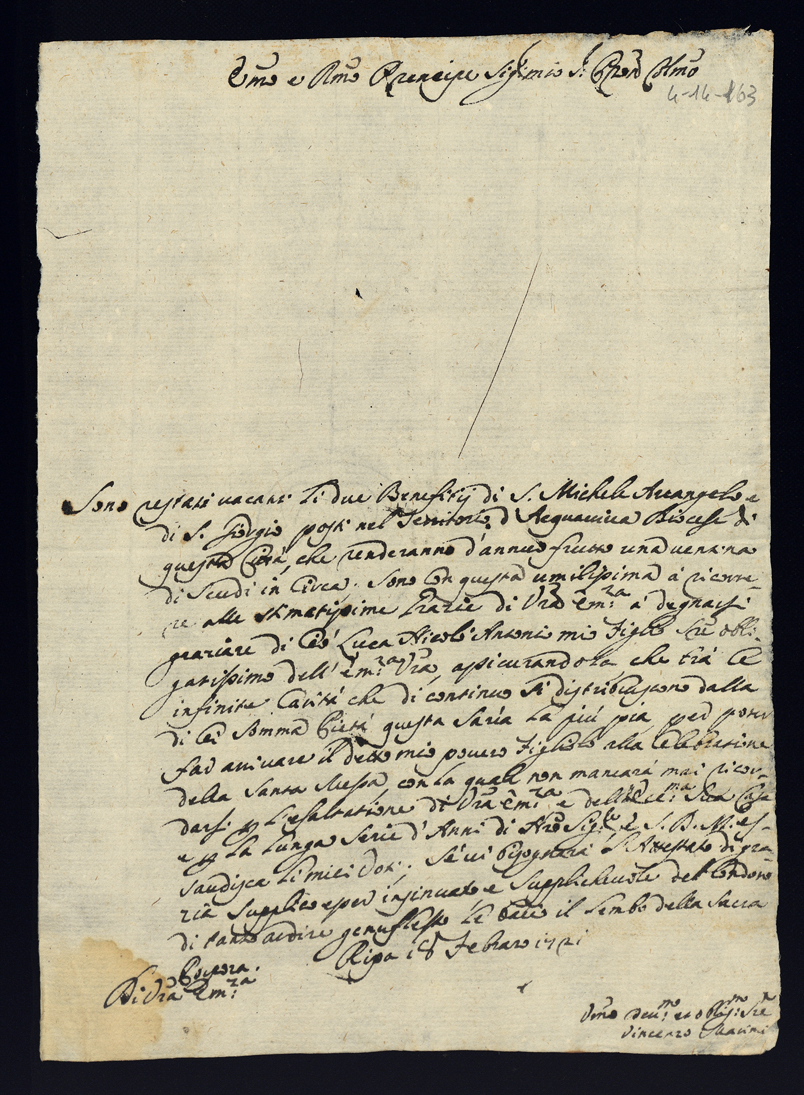 Emo e Rmo Prencipe Sig. mio Sr. Pron Colmo
4-14-163
Sono restati vacanti li due Benefitij di S. Michele Arcangelo e
di S. Giorgio posti nel Territorio d'Acquaviva Diocese di
questa Città, che renderanno d'annuo frutto una ventina
di Scudi in Circa. Sono con questa umilissima à ricorre-
re alle stimatissime Grazie di Vra Em.za à degnarsi
graziare di essi Luca Nicolò Antonio mio Figlio Sre obli-
gatissimo dell'Em.za Vra, assicurandola che trà le
infinite Carità che di continuo si distribuiscono dalla
di Lei Somma Pietà questa saria la più pia, per poter
far arrivare il detto mio povero Figliolo alla Celebratione
della Santa Messa, con la quale non mancarà mai ricor-
darsi p l'esaltatione di Vra Em.za e dell' Ecc.ma Sua Casa
e p la lunga serie d'Anni di Nro Sig.re e S. D. M. es-
saudisca li miei Voti; Se vi bisognerà l'Attestato di
ria supplico esser insinuato e supplichevole del perdono
di tanto ardire genuflesso le bacio il lembo della Sacra
Porpora. Ripa 18 Febraro 1721
Di Vra Em.za
Umo Dev.mo et obligmo Sre
Vincenzo